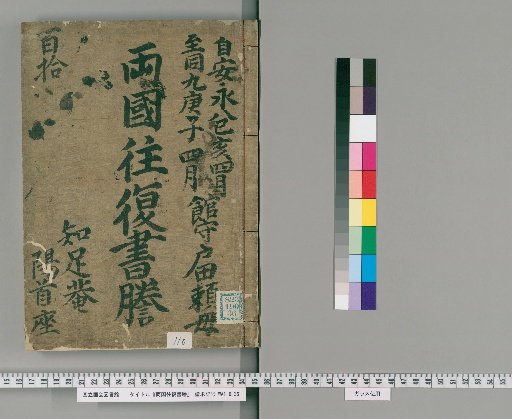 自安永八己亥四月館守戸田頼母
至同九庚子四月
両國往復書謄
百拾
知足菴
陽首座
116